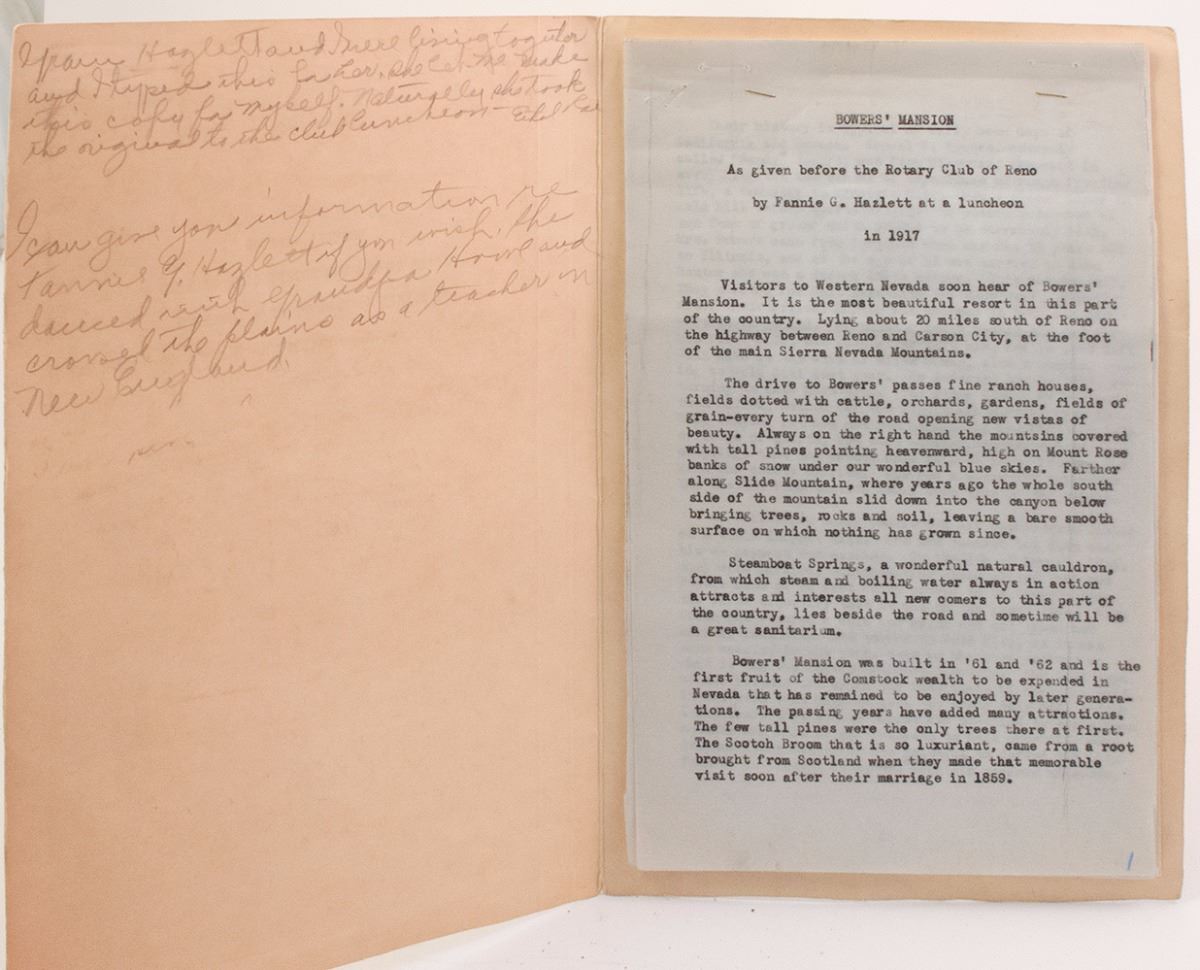 Hazlett and I were living together
and I typed this for her. She let me make
this copy for myself. Naturally she took
the original to the club luncheon — Ethel
I can give you information re
Fannie G. Hazlett if you wish. She
danced with Grandpa and
crossed the plains as a teacher in
New England.
BOWERS' MANSION
As given before the Rotary Club of Reno
by Fannie G. Hazlett at a luncheon
in 1917
Visitors to Western Nevada soon hear of Bowers'
Mansion. It is the most beautiful resort in this part
of the country. Lying about 20 miles south of Reno on
the highway between Reno and Carson City, at the foot
of the main Sierra Nevada Mountains.
The drive to Bowers' passes fine ranch houses,
fields dotted with cattle, orchards, gardens, fields of
grain-every turn of the road opening new vistas of
beauty. Always on the right hand the mountsins covered
with tall pines pointing heavenward, high on Mount Rose
banks of snow under our wonderful blue skies. Farther
along Slide Mountain, where years ago the whole south
side of the mountain slid down into the canyon below
bringing trees, rocks and soil, leaving a bare smooth
surface on which nothing has grown since.
Steamboat Springs, a wonderful natural cauldron,
from which steam and boiling water always in action
attracts and interests all new comers to this part of
the country, lies beside the road and sometime will be
a great sanitarium.
Bowers' Mansion was built in '61 and '62 and is the
first fruit of the Comstock wealth to be expended in
Nevada that has remained to be enjoyed by later genera-
tions. The passing years have added many attractions.
The few tall pines were the only trees there at first.
The Scotch Broom that is so luxuriant, came from a root
brought from Scotland when they made that memorable
visit soon after their marriage in 1859.
1